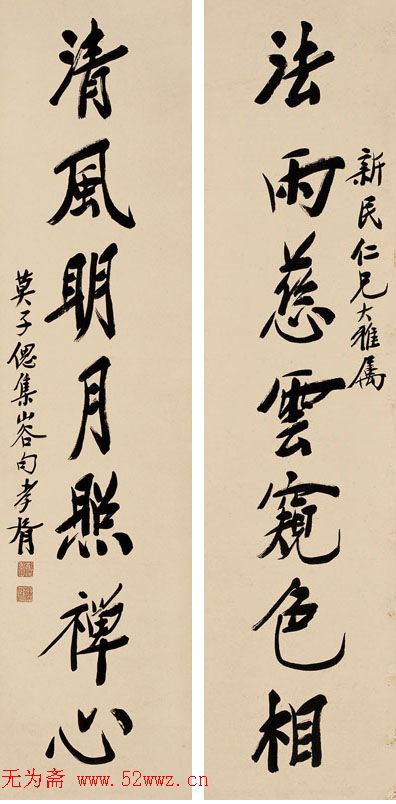 新民仁兄大雅属
法雨慈雲窺色相
清風明月照禪心
莫子偲集山谷句 孝胥
无为斋 www.52wwz.cn